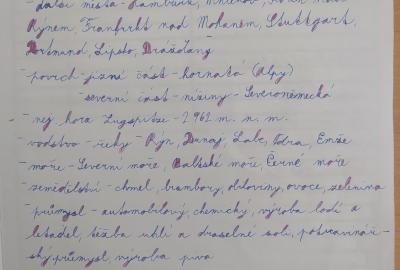 - další města - Hamburk, Mnichov, nad
Rýnem, Frankfurt nad Mohanem, Stuttgart,
Dortmund, Lipsko, Drážďany
- povrch - jižní část - hornatá (Alpy)
- severní část - nížiny - Severoněmecká
- nej hora Zugspitze - 2962 m. n. m.
- vodstvo - řeky - Rýn, Dunaj, Labe, Odra, Emže
moře - Severní moře, Baltské moře, Černé moře
- zemědělství - chmel, brambory, obiloviny, ovoce, zelenina
- průmysl - automobilový, chemický, výroba lodí a
letadel, těžba uhlí a draselné soli, potravinář-
ský průmysl, výroba piva